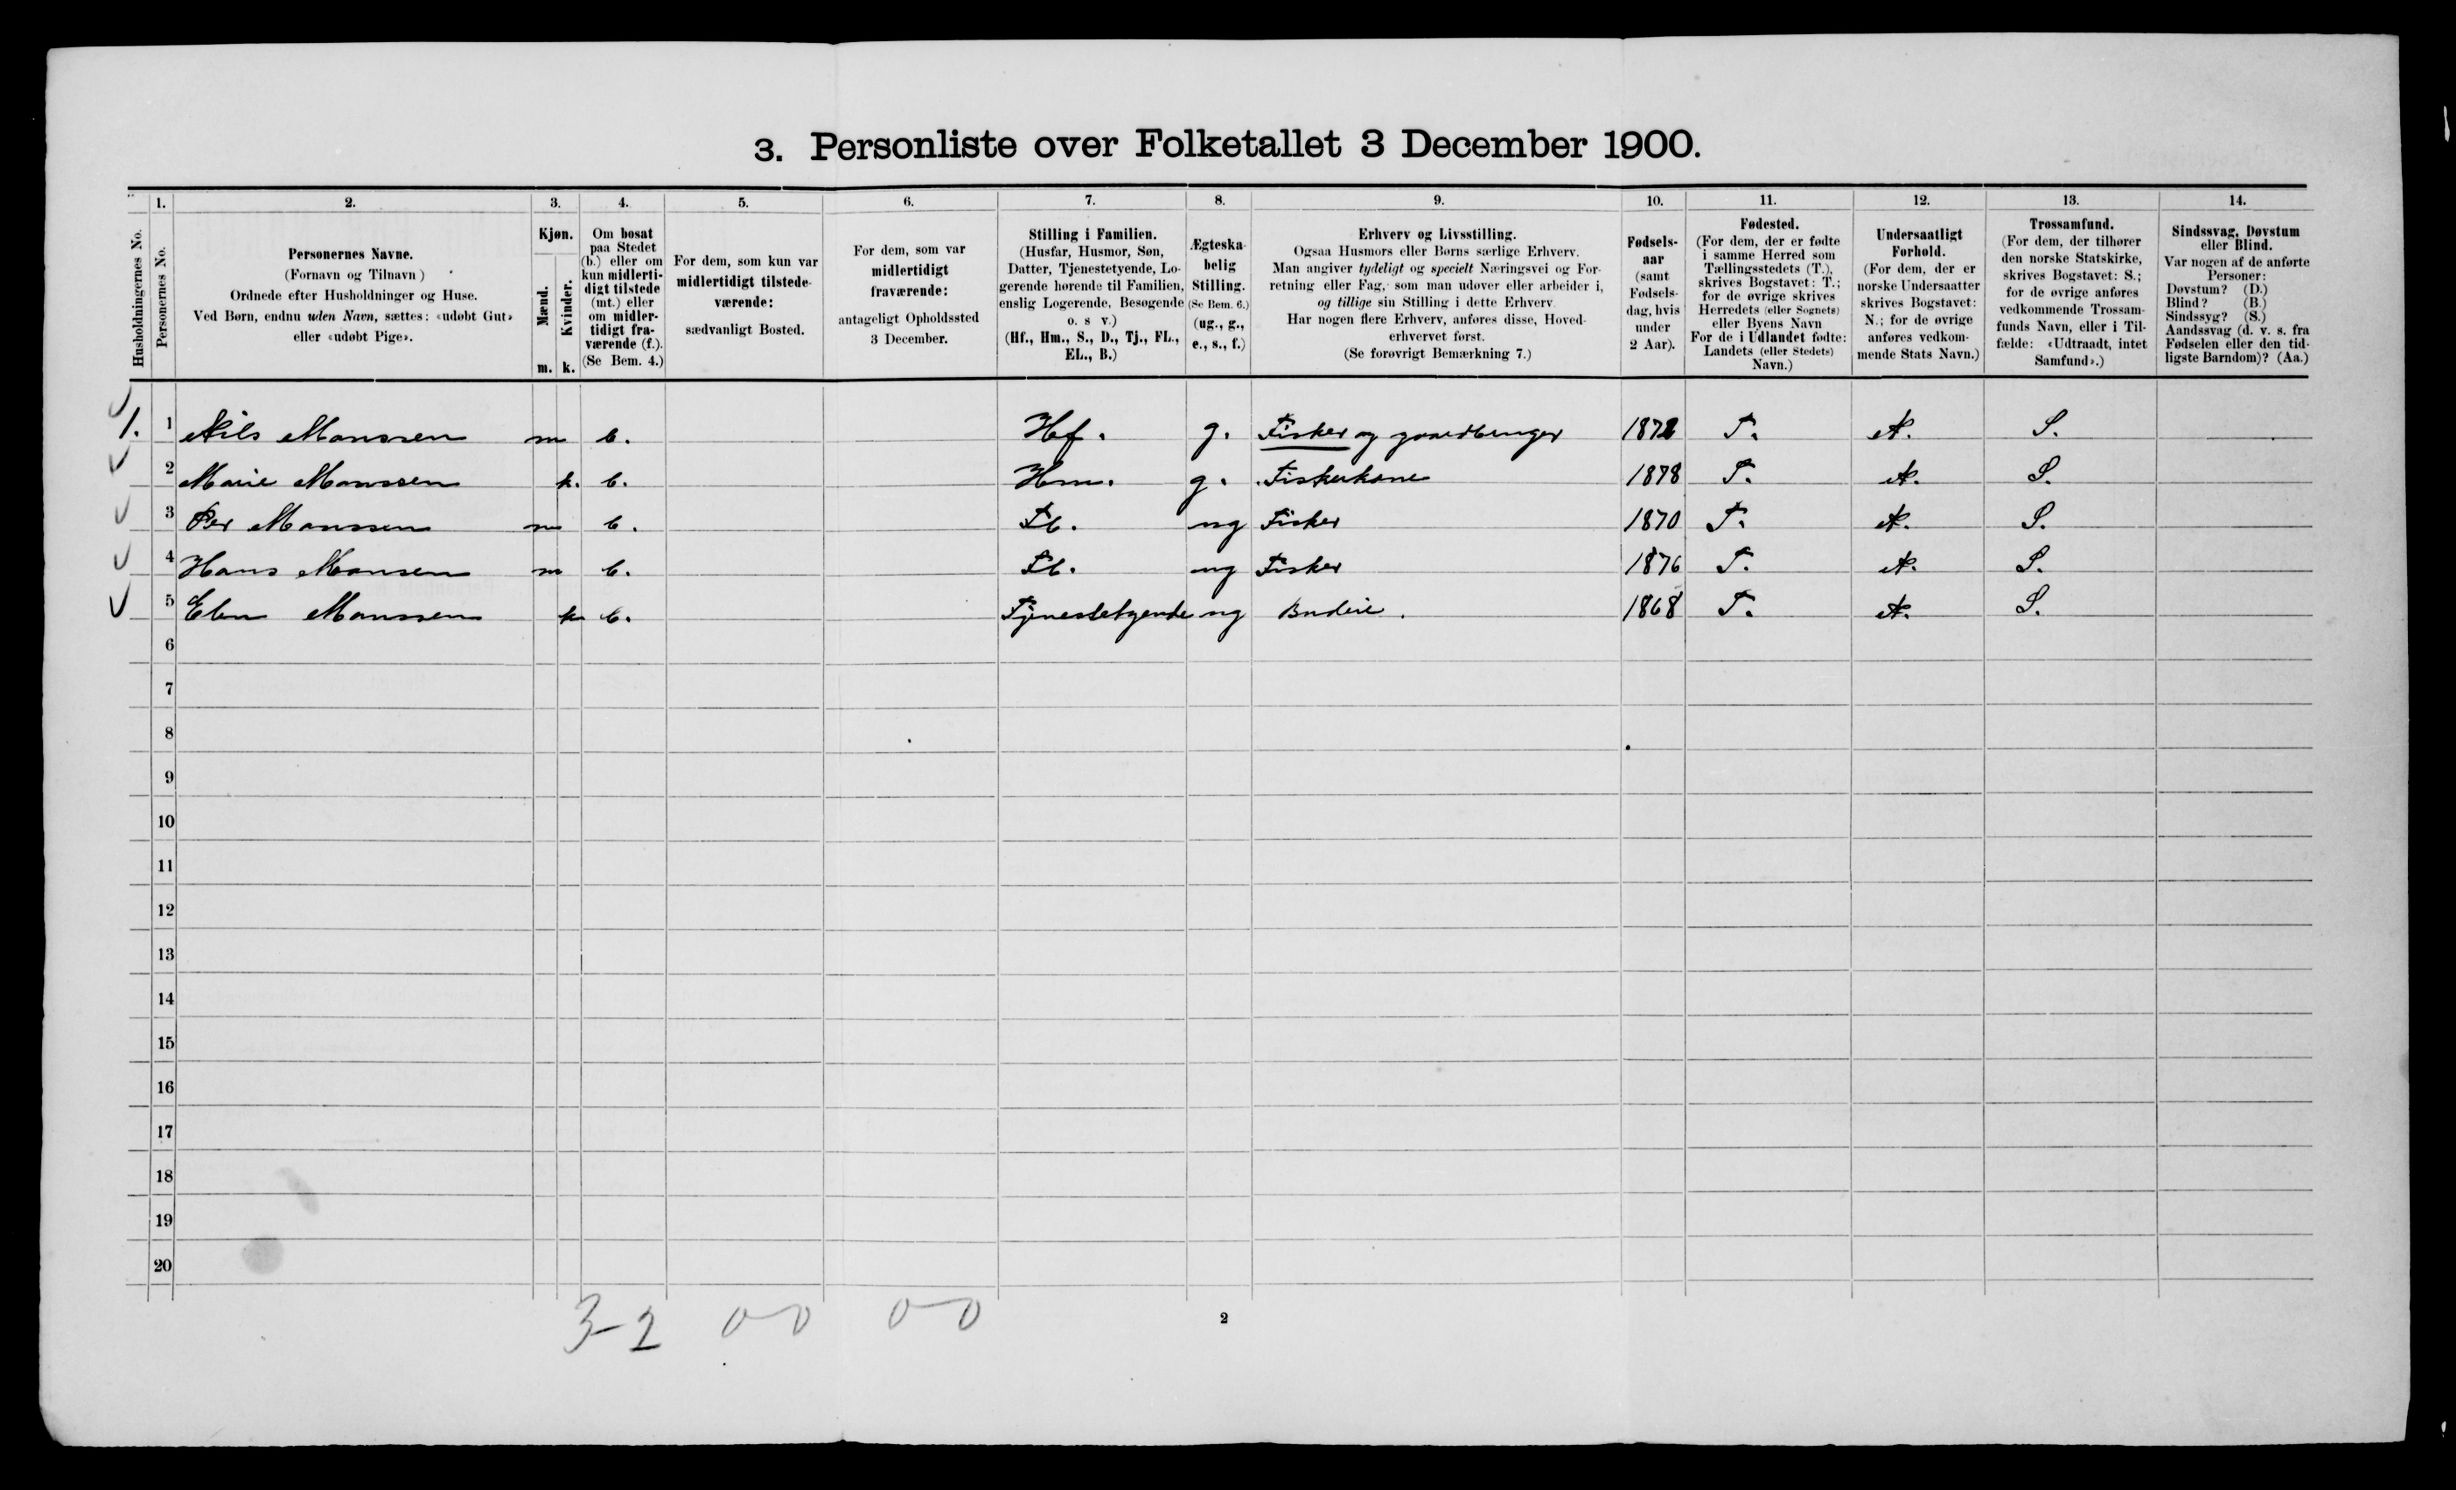 3. Personliste over Folketallet 3 December 1900.
1. 2. 3. 4. 5. 6. 7. 8. 9. 10. 11. 12. 13. 14.
Husholdningernes No.
Personernes No.
Personernes Navne.
(Fornavn og Tilnavn)
Ordnede efter Husholdninger og Huse.
Ved Børn, endnu uden Navn, sættes: «udøbt Gut»
eller «udøbt Pige».
Kjøn.
Mænd.
Kvinder.
m. k.
Om bosat
paa Stedet
(b.) eller om
kun midlerti-
digt tilstede
(mt.) eller
om midler-
tidigt fra-
værende (f.).
(Se Bem. 4.)
For dem, som kun var
midlertidigt tilstede-
værende:
sædvanligt Bosted.
For dem, som var
midlertidigt
fraværende:
antageligt Opholdssted
3 December.
Stilling i Familien.
(Husfar, Husmor, Søn,
Datter, Tjenestetyende, Lo-
gerende hørende til Familien,
enslig Logerende, Besøgende
o. s v.)
(Hf., Hm., S., D., Tj., FL.,
EL., B.)
Ægteska-
belig
Stilling.
(Se Bem. 6.)
(ug., g.,
e., s., f.)
Erhverv og Livsstilling.
Ogsaa Husmors eller Børns særlige Erhverv.
Man angiver tydeligt og specielt Næringsvei og For-
retning eller Fag, som man udøver eller arbeider i,
og tillige sin Stilling i dette Erhverv.
Har nogen flere Erhverv, anføres disse, Hoved-
erhvervet først.
(Se forøvrigt Bemærkning 7.)
Fødsels-
aar
(samt
Fødsels-
dag, hvis
under
2 Aar).
Fødested.
(For dem, der er fødte
i samme Herred som
Tællingsstedets (T.),
skrives Bogstavet: T.;
for de øvrige skrives
Herredets (eller Sognets)
eller Byens Navn
For de i Udlandet fødte:
Landets (eller Stedets)
Navn.)
Undersaatligt
Forhold.
(For dem, der er
norske Undersaatter
skrives Bogstavet:
N.; for de øvrige
anføres vedkom-
mende Stats Navn.)
Trossamfund.
(For dem, der tilhører
den norske Statskirke,
skrives Bogstavet: S.;
for de øvrige anføres
vedkommende Trossam-
funds Navn, eller i Til-
fælde: «Udtraadt, intet
Samfund».)
Sindssvag, Døvstum
eller Blind.
Var nogen af de anførte
Personer:
Døvstum? (D.)
Blind? (B.)
Sindssyg? (S.)
Aandssvag (d. v. s. fra
Fødselen eller den tid-
ligste Barndom)? (Aa.)
1. 1 Nils Monssen m b. Hf. g. Fisker og gaardbruger 1872 T. N. S.
2 Marie Monssen k. b. Hm. g. Fiskerkone 1878 T. N. S.
3 Per Monssen m b. Fl. ug Fisker 1870 T. N. S.
4 Hans Monsen m b. Fl. ug Fisker 1876 T. N. S.
5 Elen Monssen k b. Tjenestetyende ug Budeie. 1868 T. N. S.
6
7
8
9
10
11
12
13
14
15
16
17
18
19
20
3-2 0-0 0-0
2